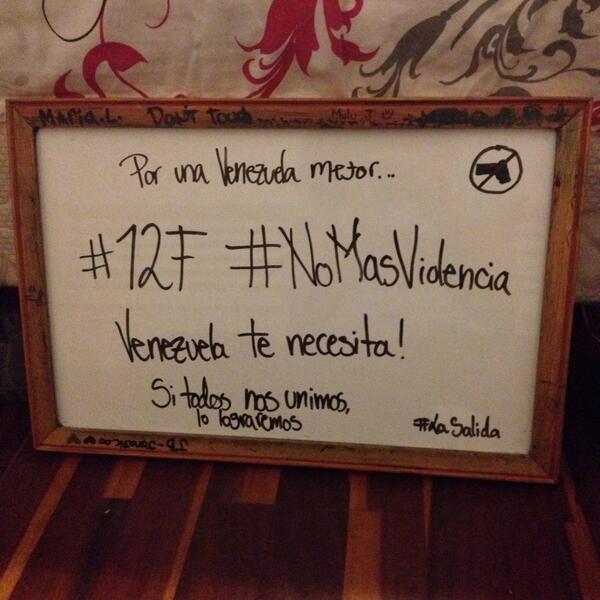 Maria.L. Don't touch
Por una Venezuela mejor...
#12F #NoMasViolencia
Venezuela te necesita!
Si todos nos unimos,
lo lograremos
#LaSalida